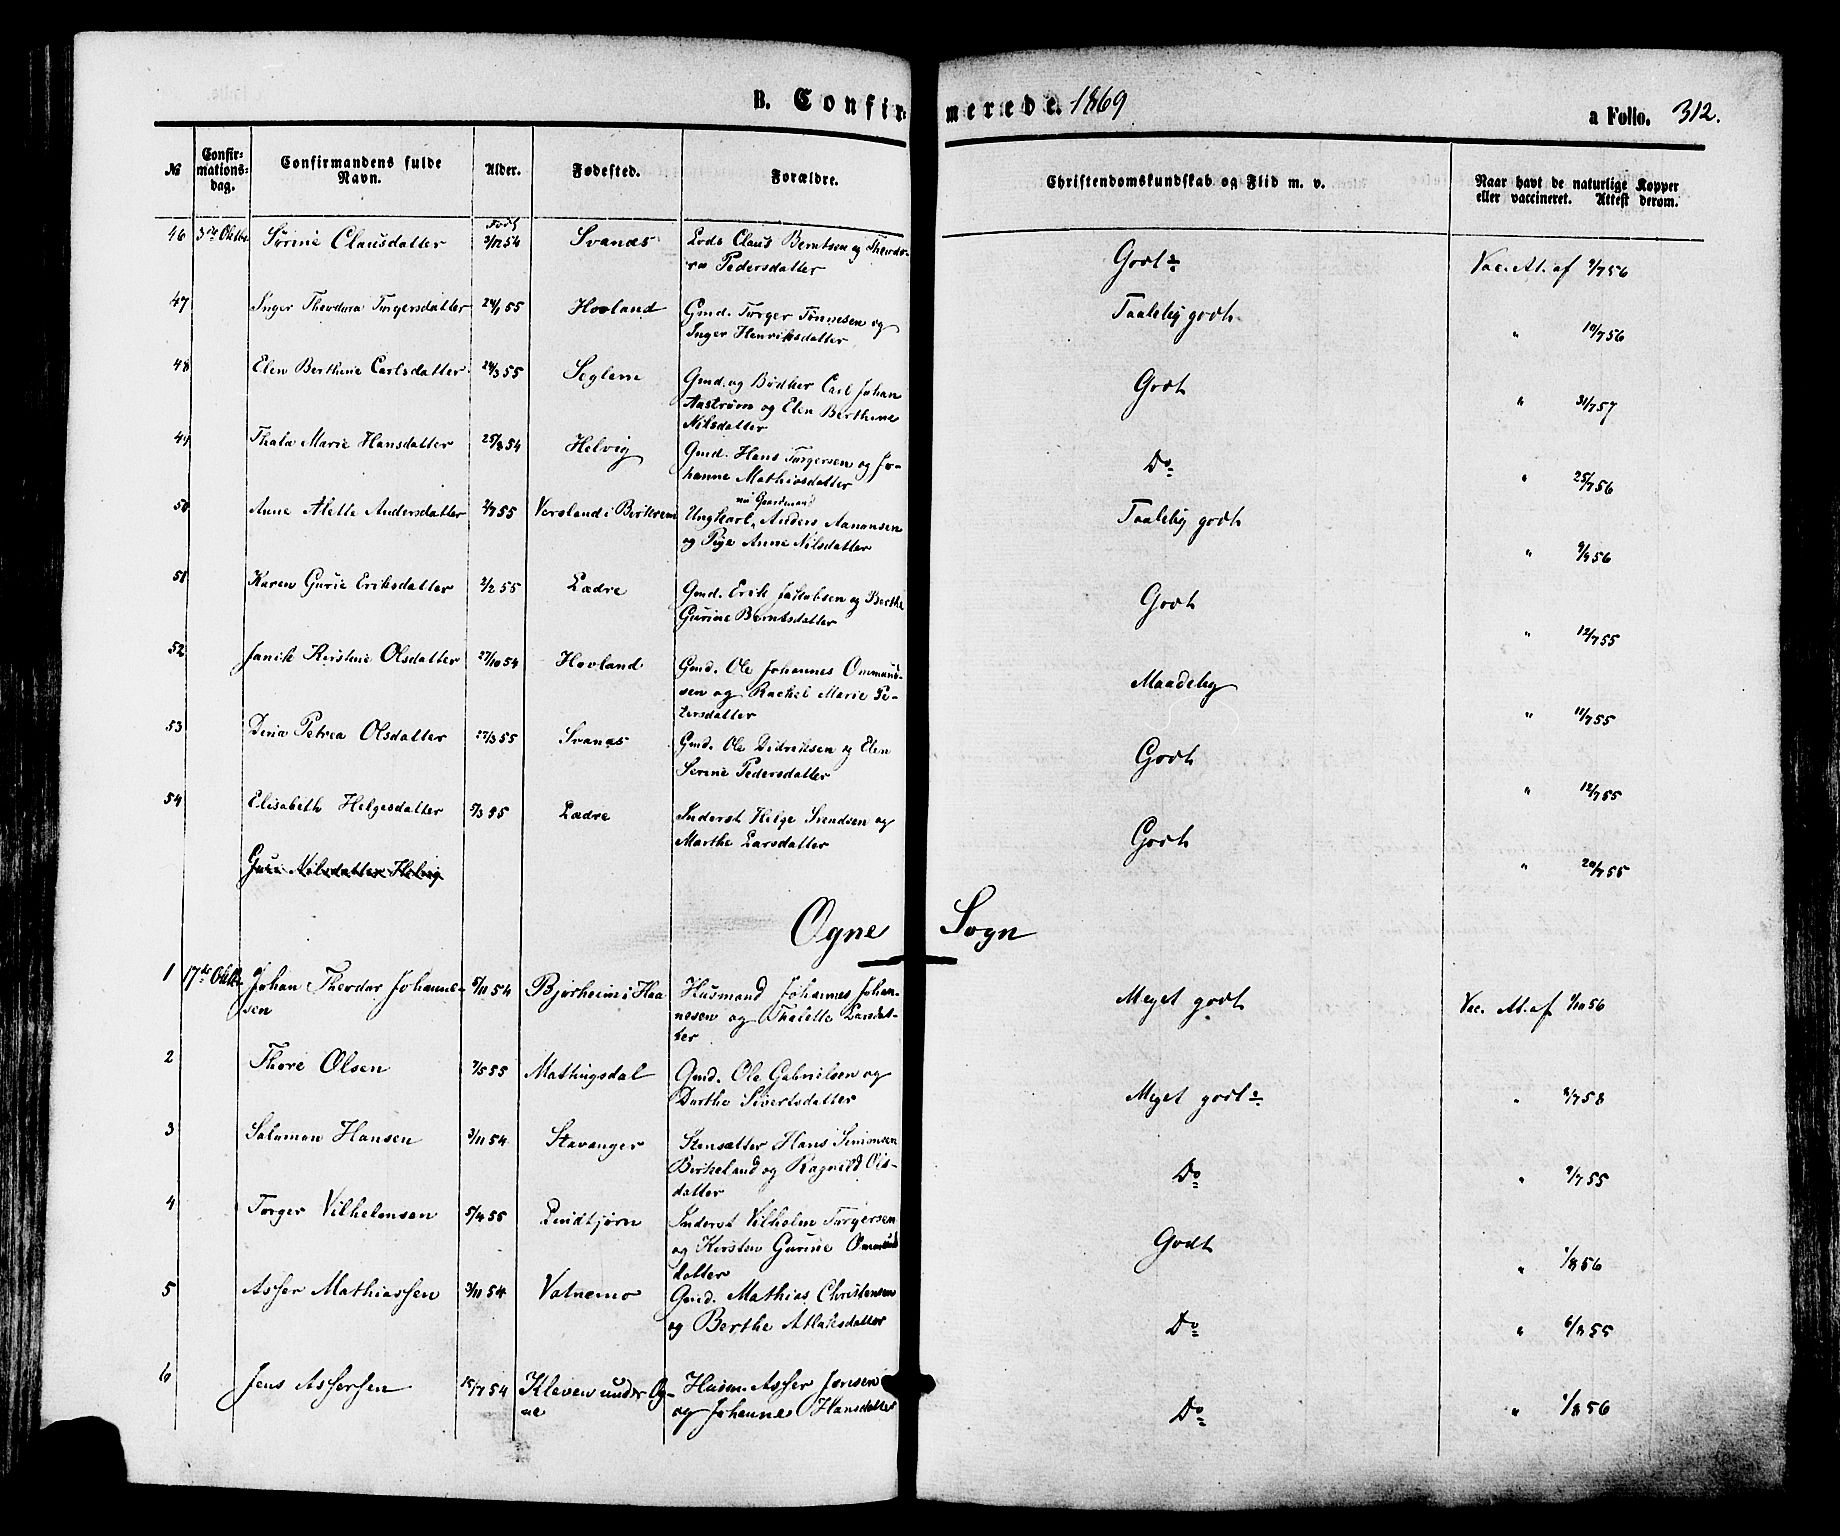 B. Confirmerede. 1869
a Folio. 312.
№ Confirmationsdag. Confirmandens fulde Navn. Alder. Fødested. Forældre. Christendomskundskab og Flid m. v. Naar havt de naturlige Kopper eller vaccineret. Attest derom.
Født
46 3die Oktbr Sörine Clausdatter 2/12 54 Svanæs Lods Claus Berntsen og Theodo-
ra Pedersdatter Godt Vac. At. af 9/7 56
47 Inger Theodora Torgersdatter 24/1 55 Hovland Gmd. Torger Tönnesen og
Inger Henriksdatter Taalelig godt " 10/7 56
48 Elen Berthine Carlsdatter 24/3 55 Seglem Gmd. og Bödker Carl Johan
Aaström og Elen Berthine
Nilsdatter Godt " 31/7 57
49 Thala Marie Hansdatter 25/8 54 Helvig Gmd. Hans Torgersen og Jo-
hanne Mathiasdatter Do " 25/7 56
nu Gaardmand
50 Anne Alette Andersdatter 2/7 55 Versland i Birkrem Ungkarl Anders Aanonsen
og Pige Anne Nilsdatter Taalelig godt " 9/8 56
51 Karen Gurie Eriksdatter 2/2 55 Lædre Gmd. Erik Jakobsen og Berthe
Gurine Berntsdatter Godt " 12/7 55
52 Janik Kirstine Olsdatter 27/10 54 Hovland Gmd. Ole Johannes Ommund-
sen og Rachel Marie Pe-
tersdatter Maadelig " 11/7 55
53 Dina Petrea Olsdatter 27/3 55 Svanæs Gmd. Ole Didriksen og Elen
Serine Pedersdatter Godt " 12/7 55
54 Elisabeth Helgesdatter 5/3 55 Lædre Inderst Helge Svendsen og
Marthe Larsdatter Godt " 20/7 55
Guri Nilsdatter Helvig
Ogne Sogn
1 17de Oktbr Johan Theodor Johanne-
sen 8/11 54 Bjorheim i Haa Husmand Johannes Johan-
nesen og Thalette Larsdat-
ter Meget godt Vac. At. af 1/10 56
2 Thore Olsen 7/5 55 Mathingsdal Gmd. Ole Gabrielsen og
Dorthe Sivertsdatter Meget godt " 8/7 58
3 Salomon Hansen 3/11 54 Stavanger Stensætter Hans Simonsen
Birkeland og Ragnild Ols-
datter Do " 9/7 55
4 Torger Vilhelmsen 5/4 55 Lindtjörn Inderst Vilhelm Torgersen
og Kirsten Gurine Ommunds
datter Godt " 1/8 56
5 Asser Mathiassen 3/11 54 Vatnemo Gmd. Mathias Christensen
og Berthe Atlaksdatter Do " 6/8 55
6 Jens Assersen 15/7 54 Kleven under Og-
ne Husm. Asser Jonsen
og Johanne Hansdatter Do " 1/8 56